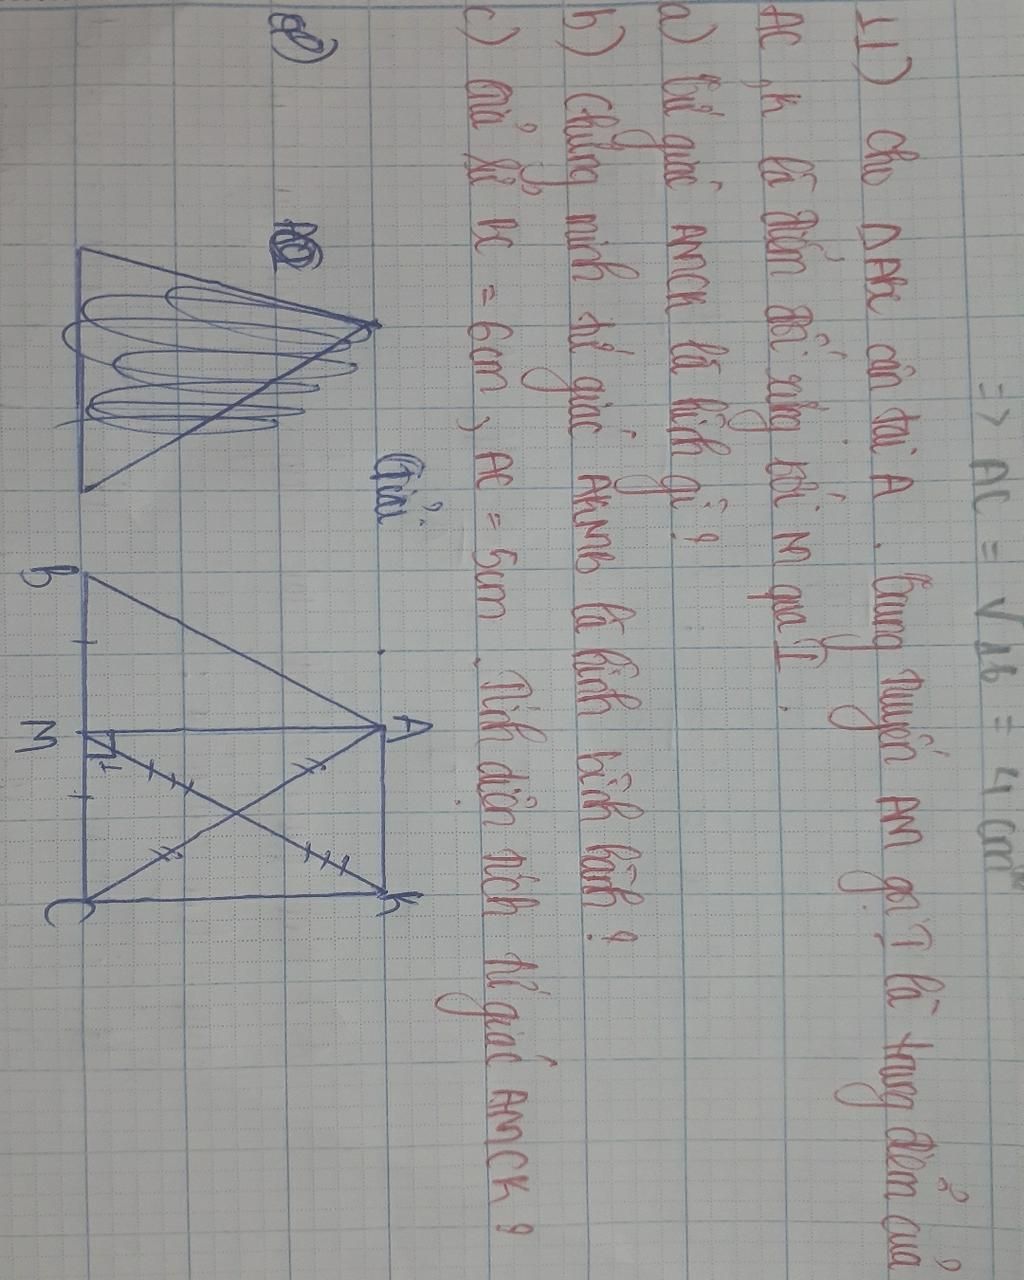 => AC = √16 = 4 cm
11) cho ΔABC cân tại A. Trung tuyến AM gọi I là trung điểm của
AC, K là điểm đối xứng với M qua I.
a) Tứ giác AMCK là hình gì?
b) Chứng minh tứ giác AKMB là hình bình hành?
c) Giả sử BC = 6cm, AC = 5cm. Tính diện tích tứ giác AMCK?
Giải
A
K
B
M
1
C